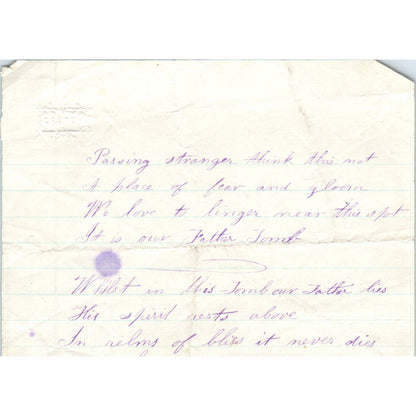 Passing stranger think this not
A place of fear and gloom
We love to linger near this spot
It is our Father Tomb
Whilst in this Tomb our Father lies
His spirit rests above
In relms of bliss it never dies